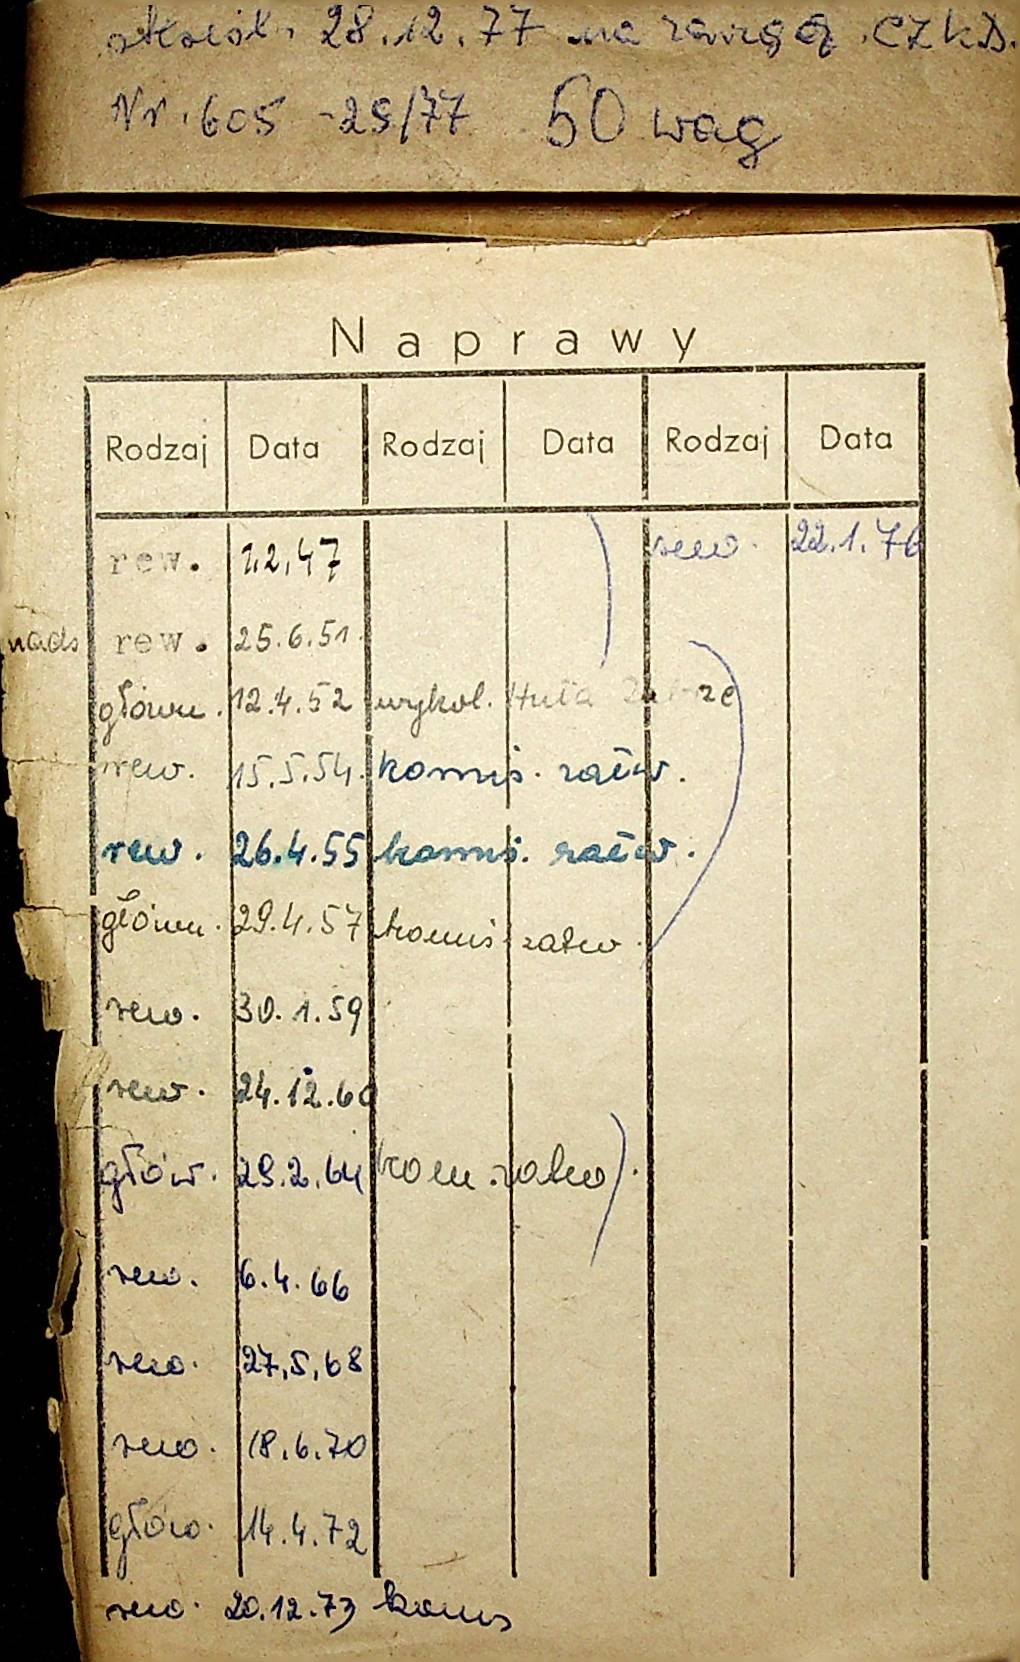 28.12.77 na
Nr. 605 -25/77 50 wag
Naprawy
Rodzaj Data Rodzaj Data Rodzaj Data
rew. 1.2.47 rew. 22.1.76
nads rew. 25.6.51.
główn. 12.4.52 wykol. Huta Zabrze
rew. 15.5.54. komis. ratow.
rew. 26.4.55 komis. ratow.
główn. 29.4.57 komis ratow.
rew. 30.1.59
rew. 24.12.60
głów. 29.2.64 kom. ratow).
rew. 6.4.66
rew. 27.5.68
rew. 18.6.70
głów. 14.4.72
rew. 20.12.73 komis